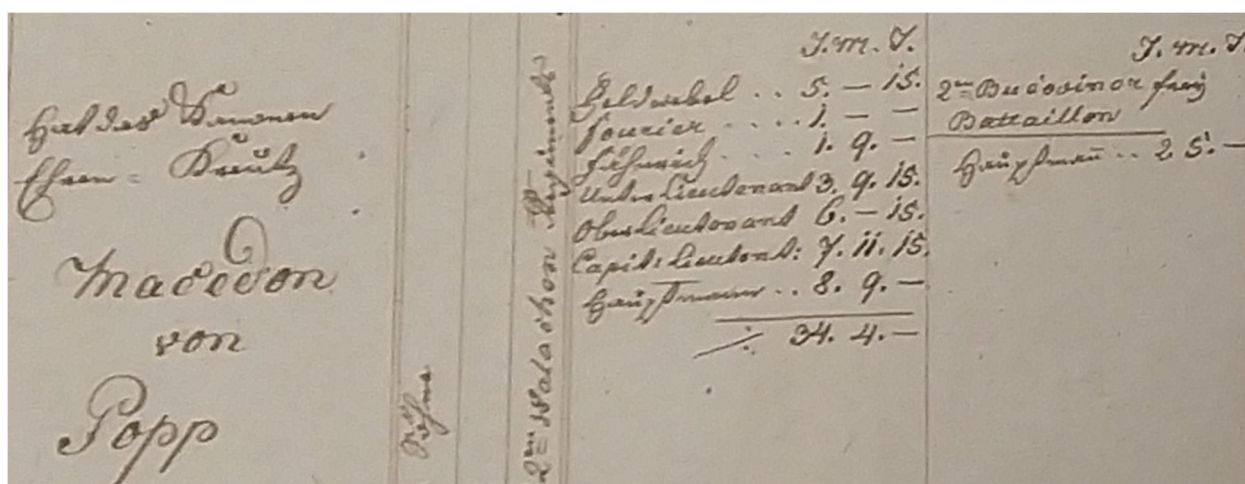 Hat das Kanonen
Ehren = Kreütz
Macedon
von
Popp
Söhne
2ten Walachen Regiments
J. M. T.
Feldwebel .. 5. — 15.
Fourier .... 1. — —
Fähnrich ... 1. 9. —
Unter Lieutenant 3. 9. 15.
Ober Lieutenant 6. — 15.
Capit: Lieutent: 7. 11. 15.
Hauptmann .. 8. 9. —
34. 4. —
J. M. T.
2ten Bucoviner frey
Battaillon
Hauptmañ .. 2 5. —